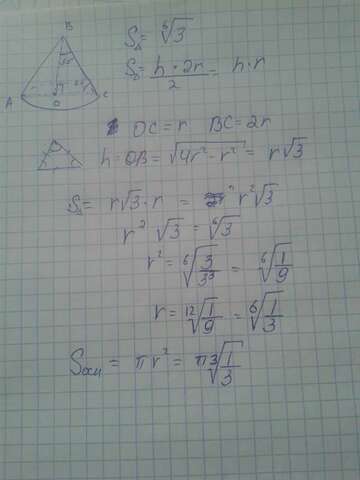 B
A
O
C
S△ = ⁶√3
S△ = h · 2r / 2 = h · r
OC = r BC = 2r
h = OB = √(4r² - r²) = r√3
S△ = r√3 · r = r²√3
r² √3 = ⁶√3
r² = ⁶√(3/3³) = ⁶√(1/9)
r = ¹²√(1/9) = ⁶√(1/3)
Sосн = πr² = π ³√(1/3)